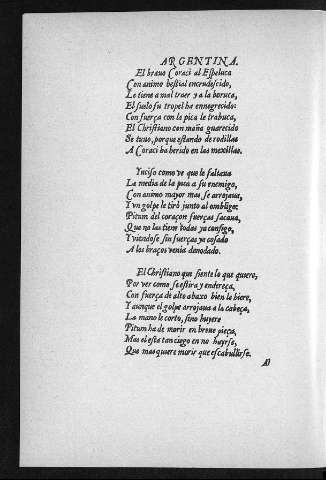 ARGENTINA.
El brauo Coraci al Espeluca
Con animo bestial encrudescido,
Le tiene a mal traer y a la boruca,
El suelo su tropel ha ennegrecido:
Con fuerça con le pica le trabuca,
El Christiano con maña guarecido
Se tuuo, porque estando de rodillas
A Coraci ha herido en las mexillas.
Ynciso como ve que le faltaua
La media de la pica a su enemigo,
Con animo mayor mas se arrojaua,
Y vn golpe le tirò junto al ombligo:
Pitum del coraçon fuerças sacaua,
Que no las tiene todas ya consigo,
Y viendose sin fuerças ya cosado
A los braços venia denodado.
El Christiano que siente lo que quiere,
Por ver como se estira y endereça,
Con fuerça de alto abaxo bien le hiere,
Y aunque el golpe arrojaua a la cabeça,
La mano le corto, sino huyere
Pitum ha de morir en breue pieça,
Mas el està tan ciego en no huyrse,
Que mas quiere morir que escabullirse.
Al